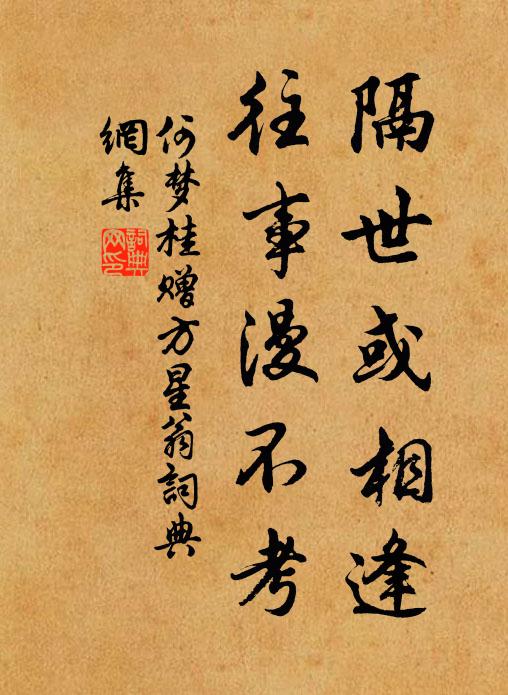 隔世或相逢
往事漫不考
何梦桂赠方星翁詞典
網集
詞典
网印